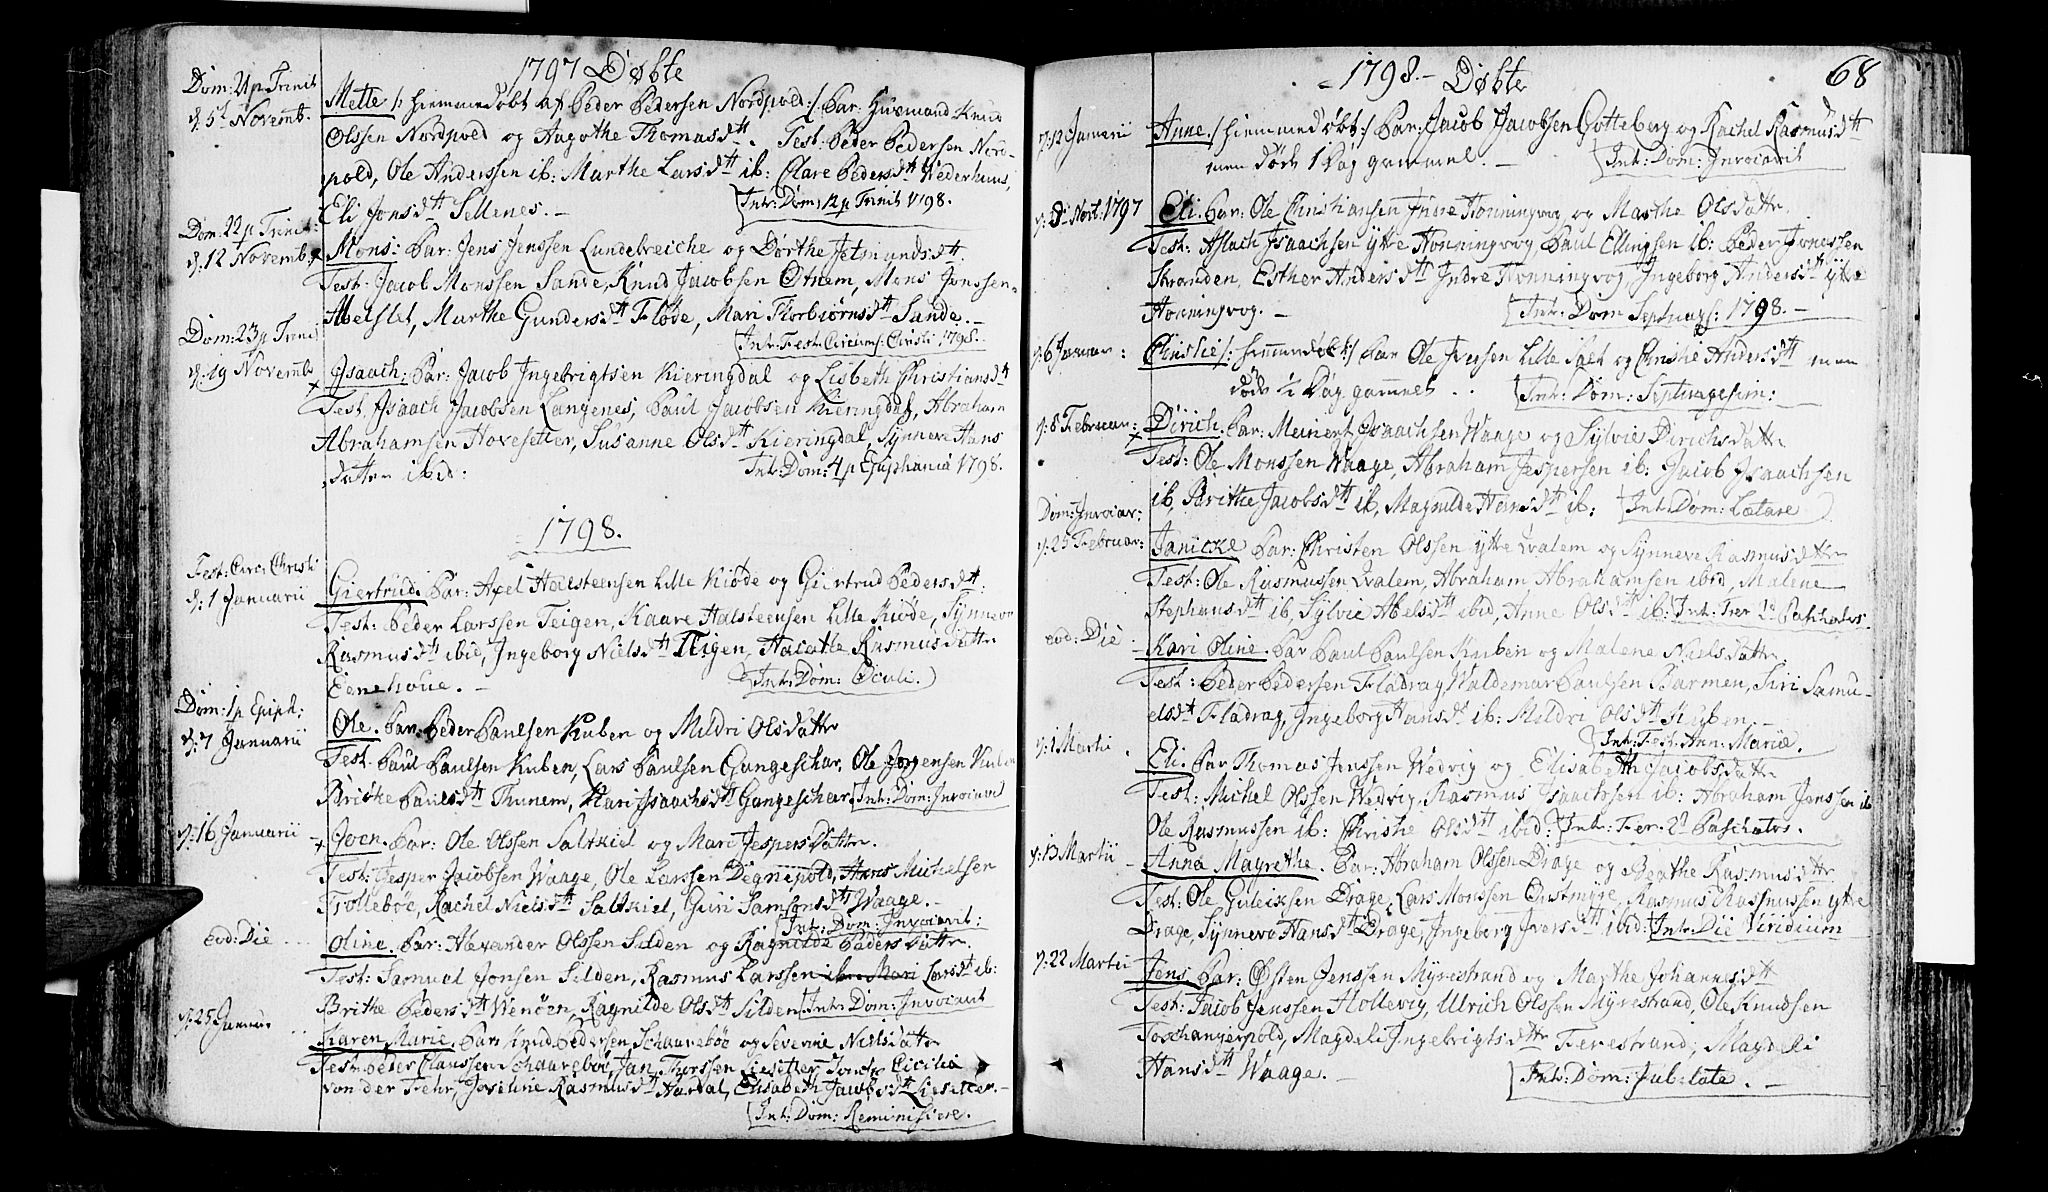 1797 Døbte
Dom: 21 p Trinit
d: 5t Novemb.
Mette /: hiemmedøbt af Peder Pedersen Nordpold :/ Par: Huusmand Knud
Olssen Nordpold og Aagothe Thomasdtt. Test: Peder Pedersen Nord-
pold, Ole Anderssen ib: Marthe Larsdtt ib: Clare Pedersdtt Wederhuus,
Eli Jonsdtt Sellenes. - Int: Dom: 12 p Trinit 1798.
Dom: 22 p Trinit:
d: 12 Novemb:
Mons: Par: Jens Jenssen Lundebreiche og Dorthe Jetmundsdtt:
Test: Jacob Monssen Sande, Knud Jacobsen Otnem, Mons Jonssen
Abelslet, Marthe Gundersdtt Fløde, Mari Thorbiørnsdtt Sande. -
Int: Fest: Circums: Christi 1798.
Dom: 23 p Trinit
d: 19 Novemb
Isaach: Par: Jacob Ingebrigtsen Kieringdal og Lisbeth Christiansdtt
Test: Isaach Jacobsen Langenes, Paul Jacobsen Kieringdal, Abraham
Abrahamsen Hovesetter, Susanne Olsdtt Kieringdal, Synneve Hans
datter ibid: Int: Dom: 4 p Epiphania 1798.
1798.
Fest: Circ: Christi
d: 1 Januarii
Giertrud. Par: Axel Halsteensen Lille Kiøde og Giertrud Pedersdtt:
Test: Peder Larssen Teigen, Kaare Halsteensen Lille Kiøde, Synneve
Rasmusdtt ibid, Ingeborg Nielsdtt Teigen, Rasmusdatter
Eenehoue. - Int: Dom: Oculi.
Dom: 1 p Epiph:
d: 7 Januarii
Ole. Par: Peder Paulsen Kuben og Mildri Olsdatter
Test: Paul Paulsen Kuben, Lars Paulsen Gangeschar, Ole Jørgensen Kuben
Paulsdtt Thunem, Mari Isaachsdtt Gangeschar Int: Dom: Invocavit
d: 16 Januarii
Joen. Par: Ole Olssen Saltkiel og Mari Jespersdatter.
Test: Jesper Jacobsen Waage, Ole Larssen Degnepold, Hans Michelsen
Trollebøe, Rachel Nielsdtt Saltkiel, Guri Samsonsdtt Waage. -
Int: Dom: Invocavit:
eod: Die
Oline. Par: Alexander Olssen Silden og Ragnilde Pedersdatter.
Test: Samuel Jonsen Silden, Rasmus Larssen ib: Mari Larsdtt ib:
Brithe Pedersdtt Wenøen, Ragnilde Olsdtt Silden Int: Dom: Invocavit
d: 25 Januar
Karen Marie. Par: Knud Pedersen Schaarebøe og Severine Nielsdatter
Test: Peder Claussen Schaarebøe, Jan Thorssen Liesetter, Cicilia
von der Fehr, Joveline Rasmusdtt Aardal, Elisabeth Jacobsdtt Liesetter. -
Int: Dom: Reminiscere.
1798. - Døbte
68
d: 12 Januarii
Anne. /: hiemmedøbt :/ Par: Jacob Jacobsen Gotteberg og Rachel Rasmusdtt
men døde 1 Dag gammel. - Int: Dom: Invocavit
d: Novb: 1797
Eli. Par: Ole Christiansen Indre Honningvog og Marthe Olsdatter
Test: Aslach Isaachsen ytre Honningvog, Paul Ellingsen ib: Peder Jonessen
Stranden, Esther Andersdtt Indre Honningvog, Ingeborg Andersdtt ytre
Honningvog. - Int: Dom Septuages: 1798. -
d: 6 Januar:
Christie /: hiemmedøbt :/ Par Ole Iversen Lille Salt og Christie Andersdtt men
døde 1/2 Dag gammel . . Int: Dom: Septuagesim:
d: 8 Februar:
Dirich. Par: Meinert Isaachsen Waage og Sylvie Dirichsdatter
Test: Ole Monssen Waage, Abraham Jespersen ib: Jacob Isaachsen
ib, Brithe Jacobsdtt ib, Magnilde Hansdtt ib: Int: Dom: Lætare
Dom: Invocav:
d: 25 Februar:
Janicke Par: Christen Olssen ytre Qvalem og Synneve Rasmusdatter
Test: Ole Rasmussen Qvalem, Abraham Abrahamsen ibid, Malene
Stephansdtt ib, Sylvie Abelsdtt ibid, Anne Olsdtt ib: Int: Fer 1d Paschatos.
eod: Die -
Kari Oline. Par Paul Paulsen Kuben og Malene Nielsdatter
Test: Peder Pedersen Fladrag, Waldemar Paulsen Barmen, Siri Samu-
elsdtt Fladrag, Ingeborg Hansdtt ib: Mildri Olsdtt Kuben. -
Int: Fest: Ann: Mariæ.
d: 1 Martii
Eli. Par Thomas Jenssen Wedvig og Elisabeth Jacobsdatter
Test: Michel Olssen Wedvig, Rasmus Isaachsen ib: Abraham Jenssen ib
Ole Rasmussen ib: Christie Olsdtt ibid: Int: Fer: 2d Paschatos.
d: 13 Martii
Anna Magrethe. Par: Abraham Olssen Drage og Beathe Rasmusdtt
Test: Ole Guleiksen Drage, Lars Monssen Qvistmyre, Rasmus Rasmussen ytre
Drage, Synneve Hansdtt Drage, Ingeborg Iversdtt ibid: Int: Die Viridium
d: 22 Martii
Jens Par: Østen Jenssen Myrestrand og Marthe Johannesdtt
Test: Jacob Jenssen Hollevig, Ulrich Olssen Myrestrand, Ole Knudsen
Toschangerpold, Magdeli Ingebrigtsdtr Ferestrand, Magdeli
Hansdtt Waage. - Int: Dom: Jubilate. -